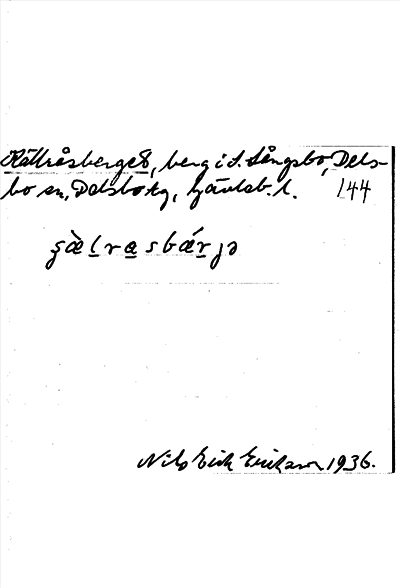 Källråsberget, berg i S. Långsbo, Dels-
bo sn, Delsbo tg, Gävleb. l. 144
Nils Erik Eriksson 1936.